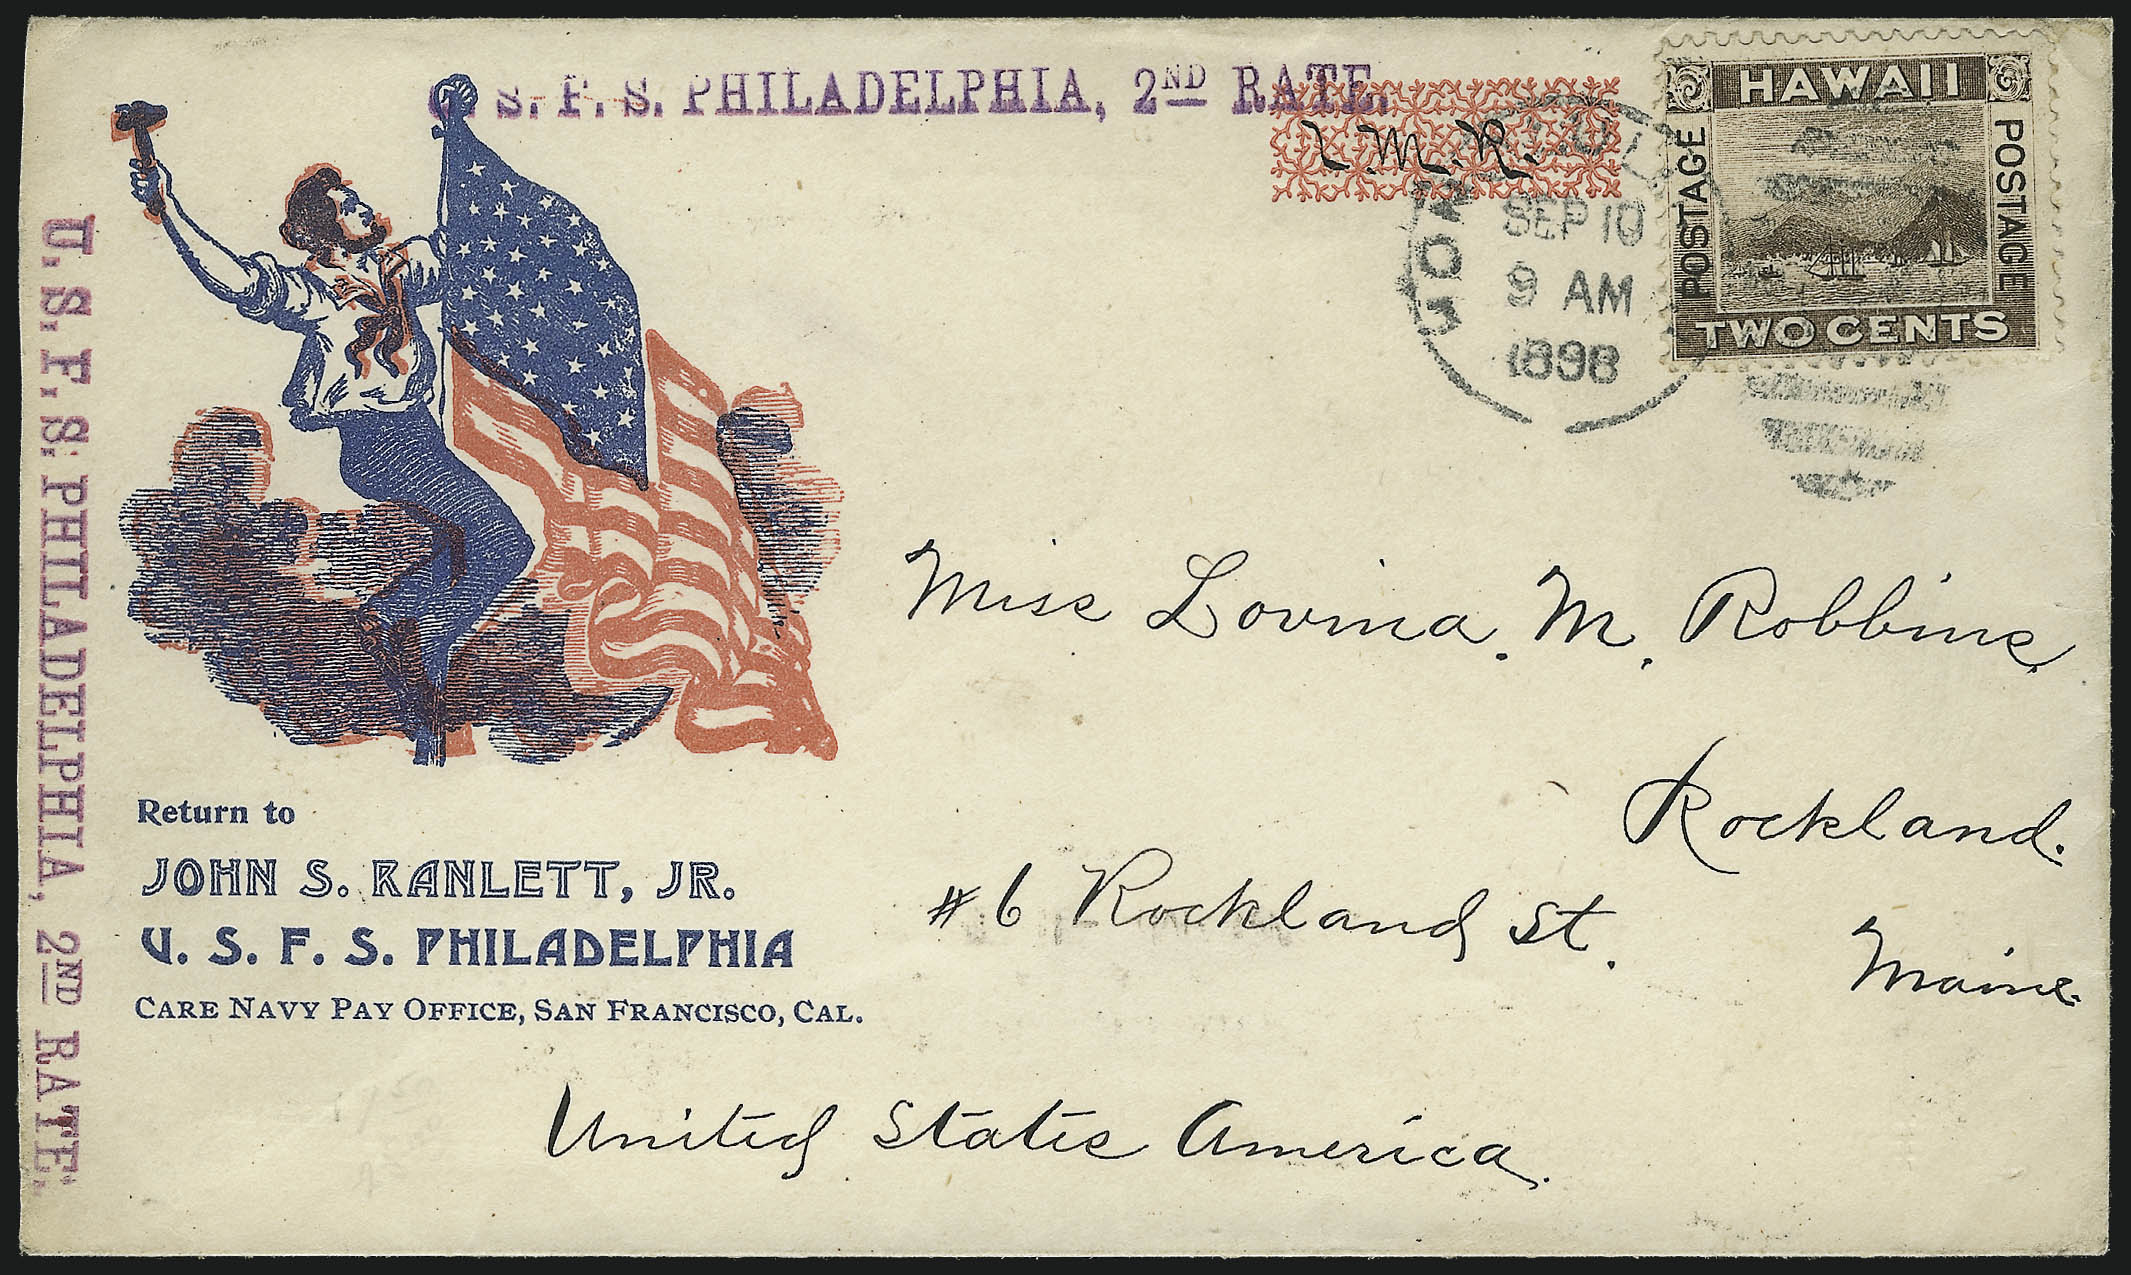 U. S. F. S. PHILADELPHIA, 2ND RATE.
L. M. R.
HONOLULU
SEP 10
9 AM
1898
HAWAII
POSTAGE
POSTAGE
TWO CENTS
U. S. F. S. PHILADELPHIA, 2ND RATE.
Miss Lovina. M. Robbins,
Rockland.
#6 Rockland St.
Maine.
Return to
JOHN S. RANLETT, JR.
U. S. F. S. PHILADELPHIA
CARE NAVY PAY OFFICE, SAN FRANCISCO, CAL.
United States America.